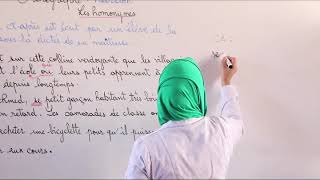 Les homonymes
ci-après est écrit par un élève de la
sous la dictée de sa maîtresse.
sur cette colline verdoyante que les villag
t l'école ou leurs petits apprennent à
depuis longtemps.
hmed, se petit garçon habitant très loin
en retard. Les camarades de classe on
acheter une bicyclette pour qu'il puiss
aux cours.